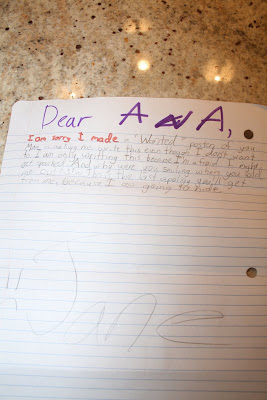 Dear AnA,
I am sorry I made a "Wanted" poster of you
Mom is making me write this even though I don't want
to I am only writting this because I'm afraid I might
get yucked. And why were you smiling when you told
me this is the last apology you'll get
from me, because I am going to hide.